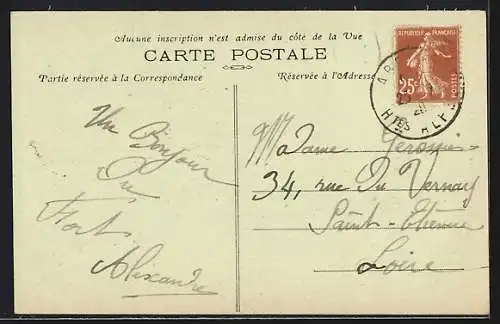 Aucune inscription n'est admise du côté de la Vue
CARTE POSTALE
Partie réservée à la Correspondance
Réservée à l'Adresse
RÉPUBLIQUE FRANÇAISE
25c
POSTES
HTES ALPES
Un Bonjour
Du
Fort
Alexandre
Madame
34, rue Du Vernay
Saint-Etienne
Loire